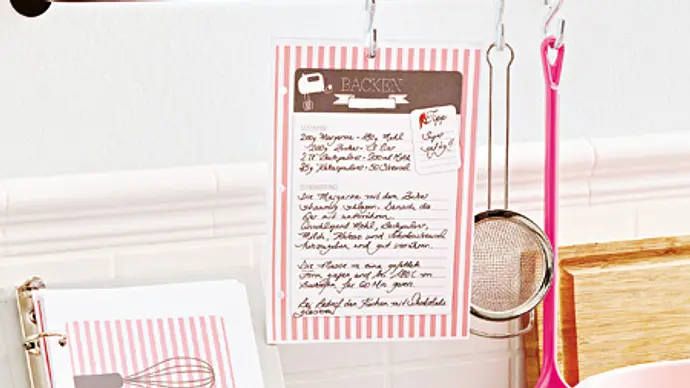 BACKEN
Tipp
Super
saftig!!
200g Margarine - 450g Mehl
200g Zucker - 5 Eier
2 TL Backpulver - 200ml Milch
25g Kakaopulver -
Die Margarine mit dem Zucker
schaumig schlagen. Danach die
Eier mit unterrühren.
Anschließend Mehl, Backpulver,
Milch, Kakao und
dazugeben und gut verrühren.
Die Masse in eine gefettete
Form geben und bei 180°C im
Backofen für 60 Min. garen.
Bei Bedarf den Kuchen mit Schokolade
glasieren!